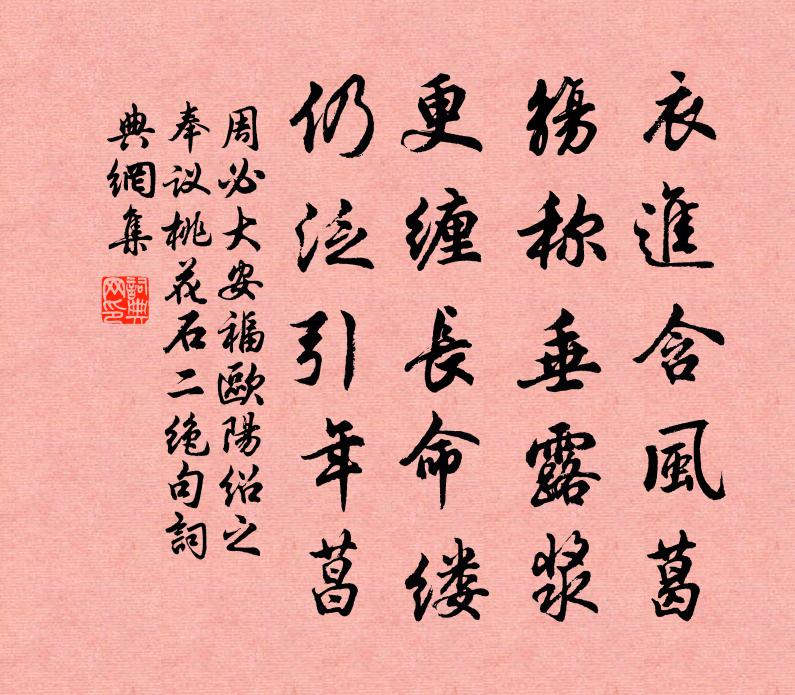 衣進含風葛
觴称垂露漿
更缠長命缕
仍泛引年菖
周必大安福歐陽绍之
奉议桃花石二绝句詞
典網集
詞典
网印